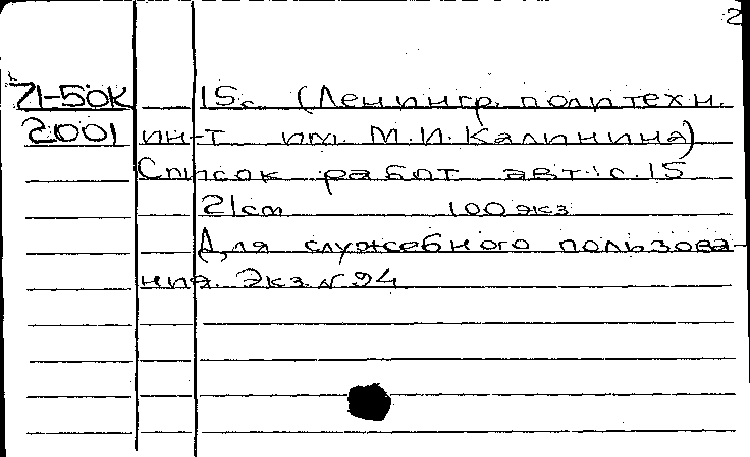 2
71-50К 15с. (Ленингр. политехн.
2001 ин-т им. М.И. Калинина)
Список работ авт.: с. 15
21 см 100 экз
Для служебного пользова-
ния. Экз. № 94